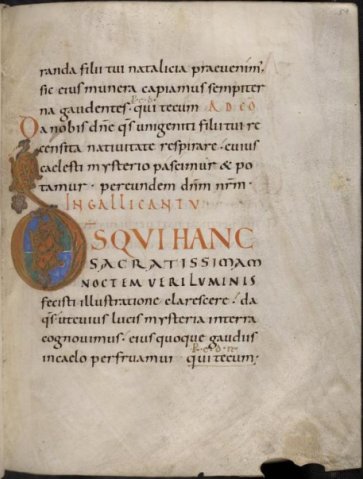 randa filii tui natalicia praevenim,
sic eius munera capiamus sempiter
na gaudentes. qui tecum AD CO
Da nobis dñe qs unigeniti filii tui re
censita nativitate respirare. cuius
caelesti mysterio pascimur & po
tamur. per eundem dñm nrm.
IN GALLICANTU
DS QUI HANC
SACRATISSIMAM
NOCTEM VERI LUMINIS
fecisti illustratione clarescere. da
qs ut cuius lucis mysteria in terra
cognovimus. eius quoque gaudiis
in caelo perfruamur qui tecum.